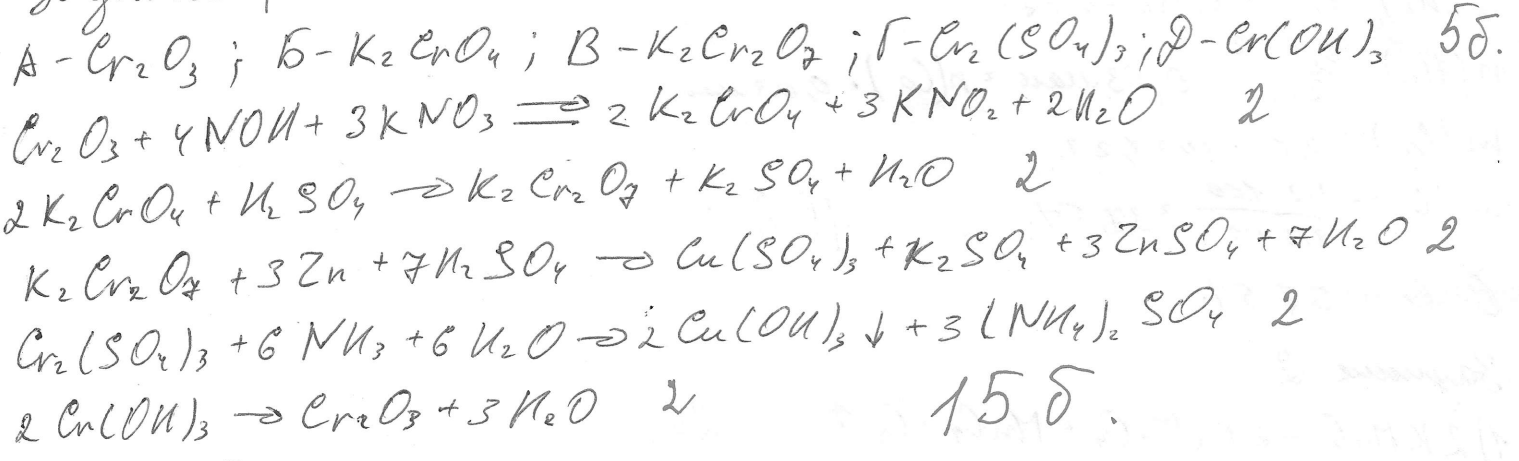 А - Cr₂O₃ ; Б - K₂CrO₄ ; В - K₂Cr₂O₇ ; Г - Cr₂(SO₄)₃ ; Д - Cr(OH)₃ 5б.
Cr₂O₃ + 4NOH + 3KNO₃ ⇒ 2K₂CrO₄ + 3KNO₂ + 2H₂O 2
2K₂CrO₄ + H₂SO₄ → K₂Cr₂O₇ + K₂SO₄ + H₂O 2
K₂Cr₂O₇ + 3Zn + 7H₂SO₄ → Cu(SO₄)₃ + K₂SO₄ + 3ZnSO₄ + 7H₂O 2
Cr₂(SO₄)₃ + 6NH₃ + 6H₂O → 2Cu(OH)₃↓ + 3(NH₄)₂SO₄ 2
2Cr(OH)₃ → Cr₂O₃ + 3H₂O 2
15б.